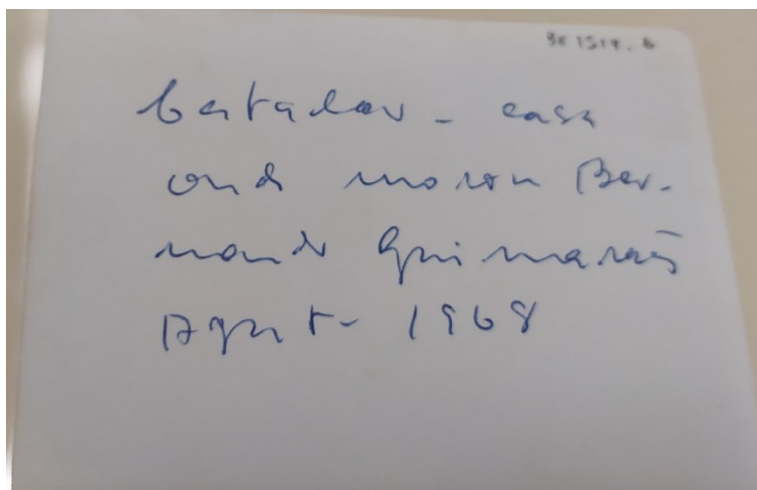 Catalão - casa
onde morou Ber-
nardo Guimarães
Agosto 1968